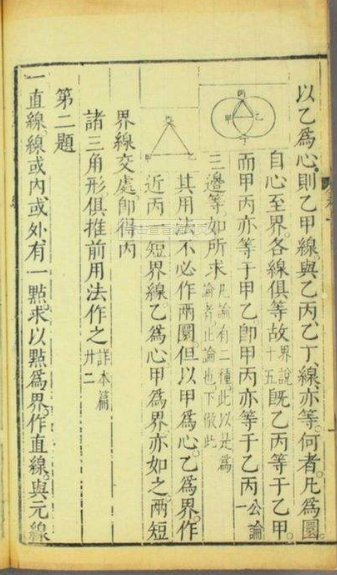 以乙爲心則乙甲線與乙丙乙丁線亦等何者凡爲圜
自心至界各線俱等故界說十五旣乙丙等于乙甲
而甲丙亦等于甲乙卽甲丙亦等于乙丙公論
三邊等如所求凡論有二種此以是爲論者正論也下倣此
其用法不必作兩圜但以甲爲心乙爲界作
近丙一短界線乙爲心甲爲界亦如之兩短
界線交處卽得丙
諸三角形俱推前用法作之詳本篇廿二
第二題
一直線線或內或外有一點求以點爲界作直線與元線
丙
甲
乙
丁
丙
甲
乙